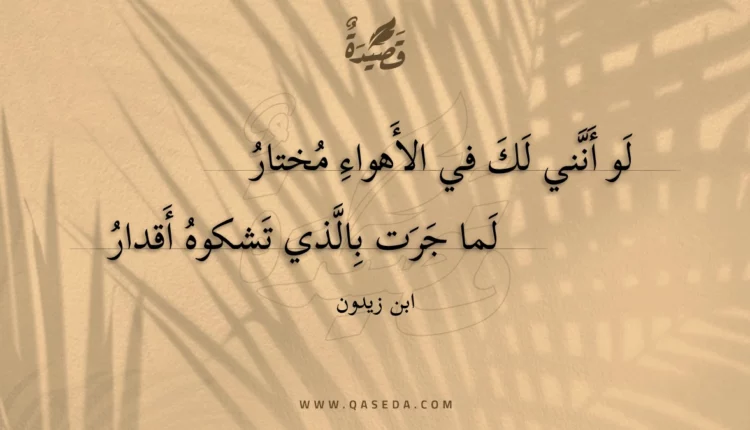 قَصِيْدَةٌ
لَو أَنَّني لَكَ في الأَهواءِ مُختارُ
لَما جَرَت بِالَّذي تَشكوهُ أَقدارُ
ابن زيدون
WWW.QASEDA.COM